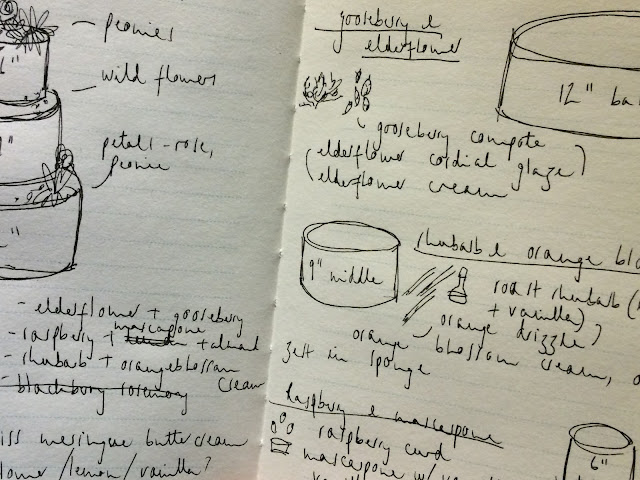 6"
peonies
wild flowers
9"
petals - rose,
peonie
- elderflower + gooseberry
- raspberry + marscapone + almond
- rhubarb + orangeblossom
cream
- blackbury rosemary
iss meringue buttercream
lower / lemon / vanilla?
gooseberry &
elderflower
12" ba
gooseberry compote
(elderflower cordial glaze)
(elderflower cream
9" middle
rhubarb & orange blo
roast rhubarb (
+ vanilla)
orange drizzle?
orange blossom cream,
zest in sponge
Raspbury & marscapone
raspberry curd
marscapone w/
6"